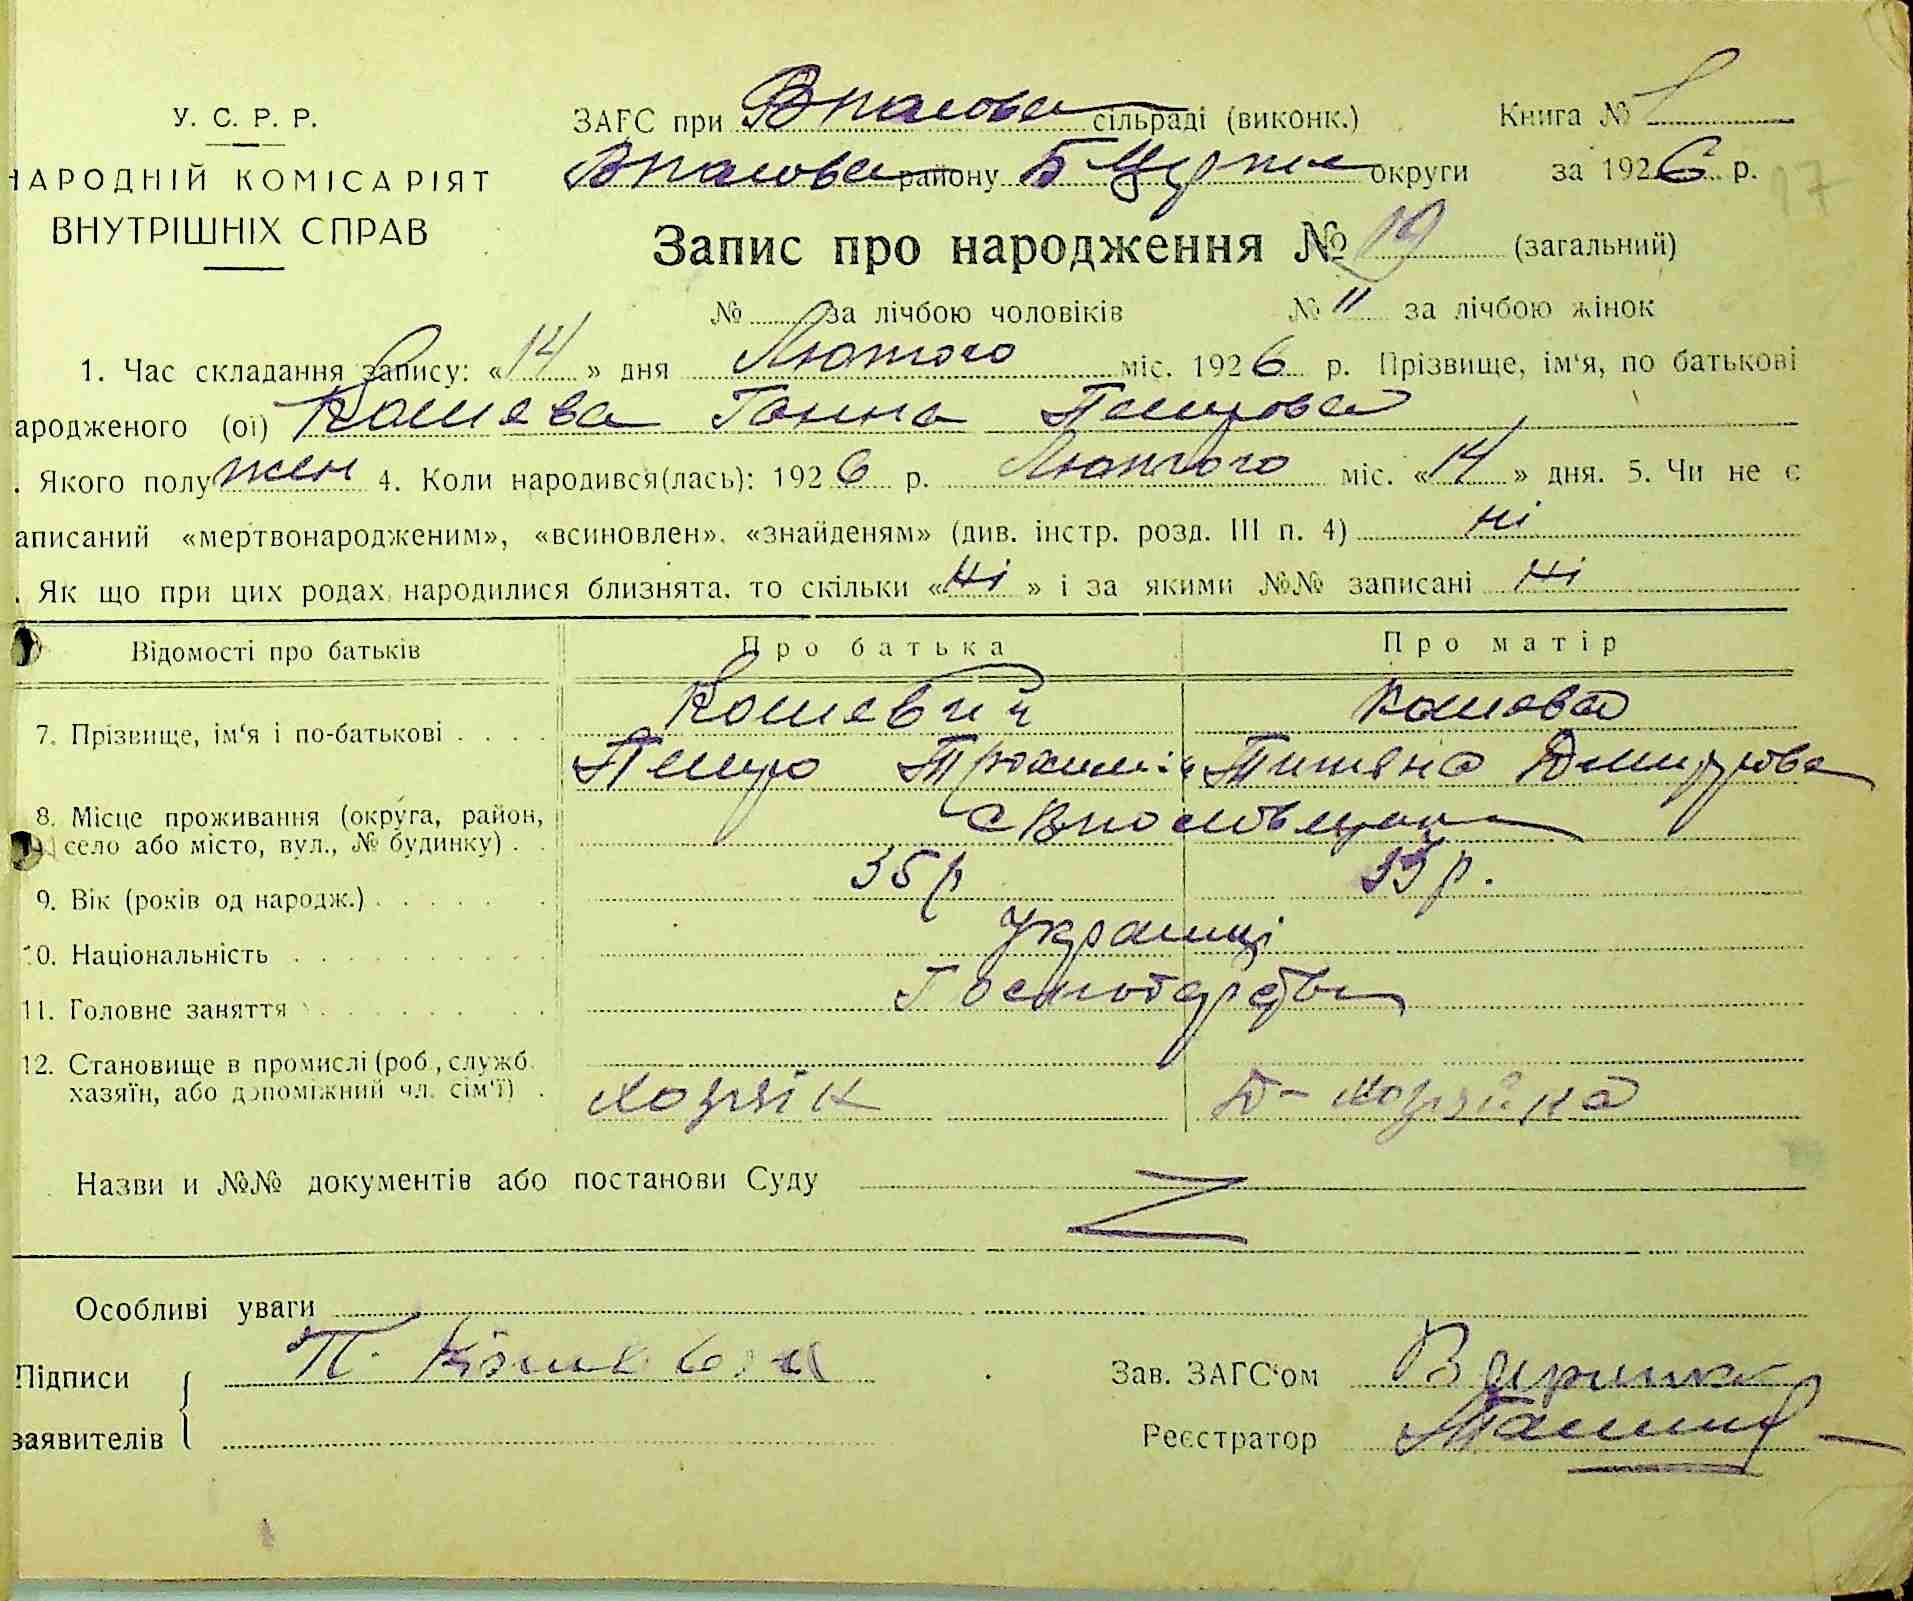 У. С. Р. Р.
НАРОДНІЙ КОМІСАРІЯТ
ВНУТРІШНІХ СПРАВ
ЗАГС при Впалова сільраді (виконк.) Книга №
району Б Церкв округи за 1926 р.
17
Запис про народження № 19 (загальний)
№ за лічбою чоловіків № 11 за лічбою жінок
1. Час складання запису: «14» дня Лютого міс. 1926 р. Прізвище, ім'я, по батькові
ародженого (ої) Кошева Ганна Петрова
. Якого полу жен 4. Коли народився(лась): 1926 р. Лютого міс. «14» дня. 5. Чи не є
аписаний «мертвонародженим», «всиновлен», «знайденям» (див. інстр. розд. III п. 4) ні
. Як що при цих родах народилися близнята, то скільки «ні» і за якими №№ записані ні
Відомості про батьків Про батька Про матір
7. Прізвище, ім'я і по-батькові Кошевий Кошова
Петро Трохимів Титяна Дмитрова
8. Місце проживання (округа, район,
село або місто, вул., № будинку)
9. Вік (років од народж.) 35 р 33 р.
10. Національність Українці
11. Головне заняття Господарство
12. Становище в промислі (роб., служб.
хазяїн, або допоміжний чл. сім'ї) Хозяїн Д-хозяйка
Назви и №№ документів або постанови Суду
Особливі уваги
Підписи П. Кошевий Зав. ЗАГС'ом
заявителів Реєстратор